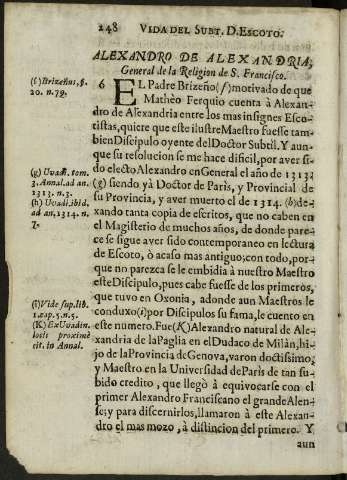 248 VIDA DEL SUBT. D. ESCOTO.
ALEXANDRO DE ALEXANDRIA,
General de la Religion de S. Francisco.
6 EL Padre Brizeño (f) motivado de que
Mathèo Ferquio cuenta à Alexan-
dro de Alexandria entre los mas insignes Esco-
tistas, quiere que este ilustre Maestro fuesse tam-
bien Discipulo oyente del Doctor Subtil. Y aun-
que su resolucion se me hace dificil, por aver si-
do electo Alexandro en General el año de 1313.
(g) siendo yà Doctor de Paris, y Provincial de
su Provincia, y aver muerto el de 1314. (h) de-
xando tanta copia de escritos, que no caben en
el Magisterio de muchos años, de donde pare-
ce se sigue aver sido contemporaneo en lectura
de Escoto, ò acaso mas antiguo; con todo, por-
que no parezca se le embidia à nuestro Maestro
este Discipulo, pues cabe fuesse de los primeros,
que tuvo en Oxonia, adonde aun Maestros le
conduxo (i) por Discipulos su fama, le cuento en
este numero. Fue (K) Alexandro natural de Ale-
xandria de la Paglia en el Dudaco de Milàn, hi-
jo de la Provincia de Genova, varon doctissimo,
y Maestro en la Universidad de Paris de tan su-
bido credito, que llegò à equivocarse con el
primer Alexandro Franciscano el grande Alen-
se; y para discernirlos, llamaron à este Alexan-
dro el mas mozo, à distincion del primero. Y
aun
(f) Brizeñus, p.
20. n. 79.
(g) Uvadi. tom.
3. Annal. ad an.
1313. n. 3.
(h) Uvadi. ibid.
ad an. 1314. n.
7.
(i) Vide sup. lib.
1. cap. 5. n. 5.
(K) Ex Uvadin.
locis proximè
cit. in Annal.